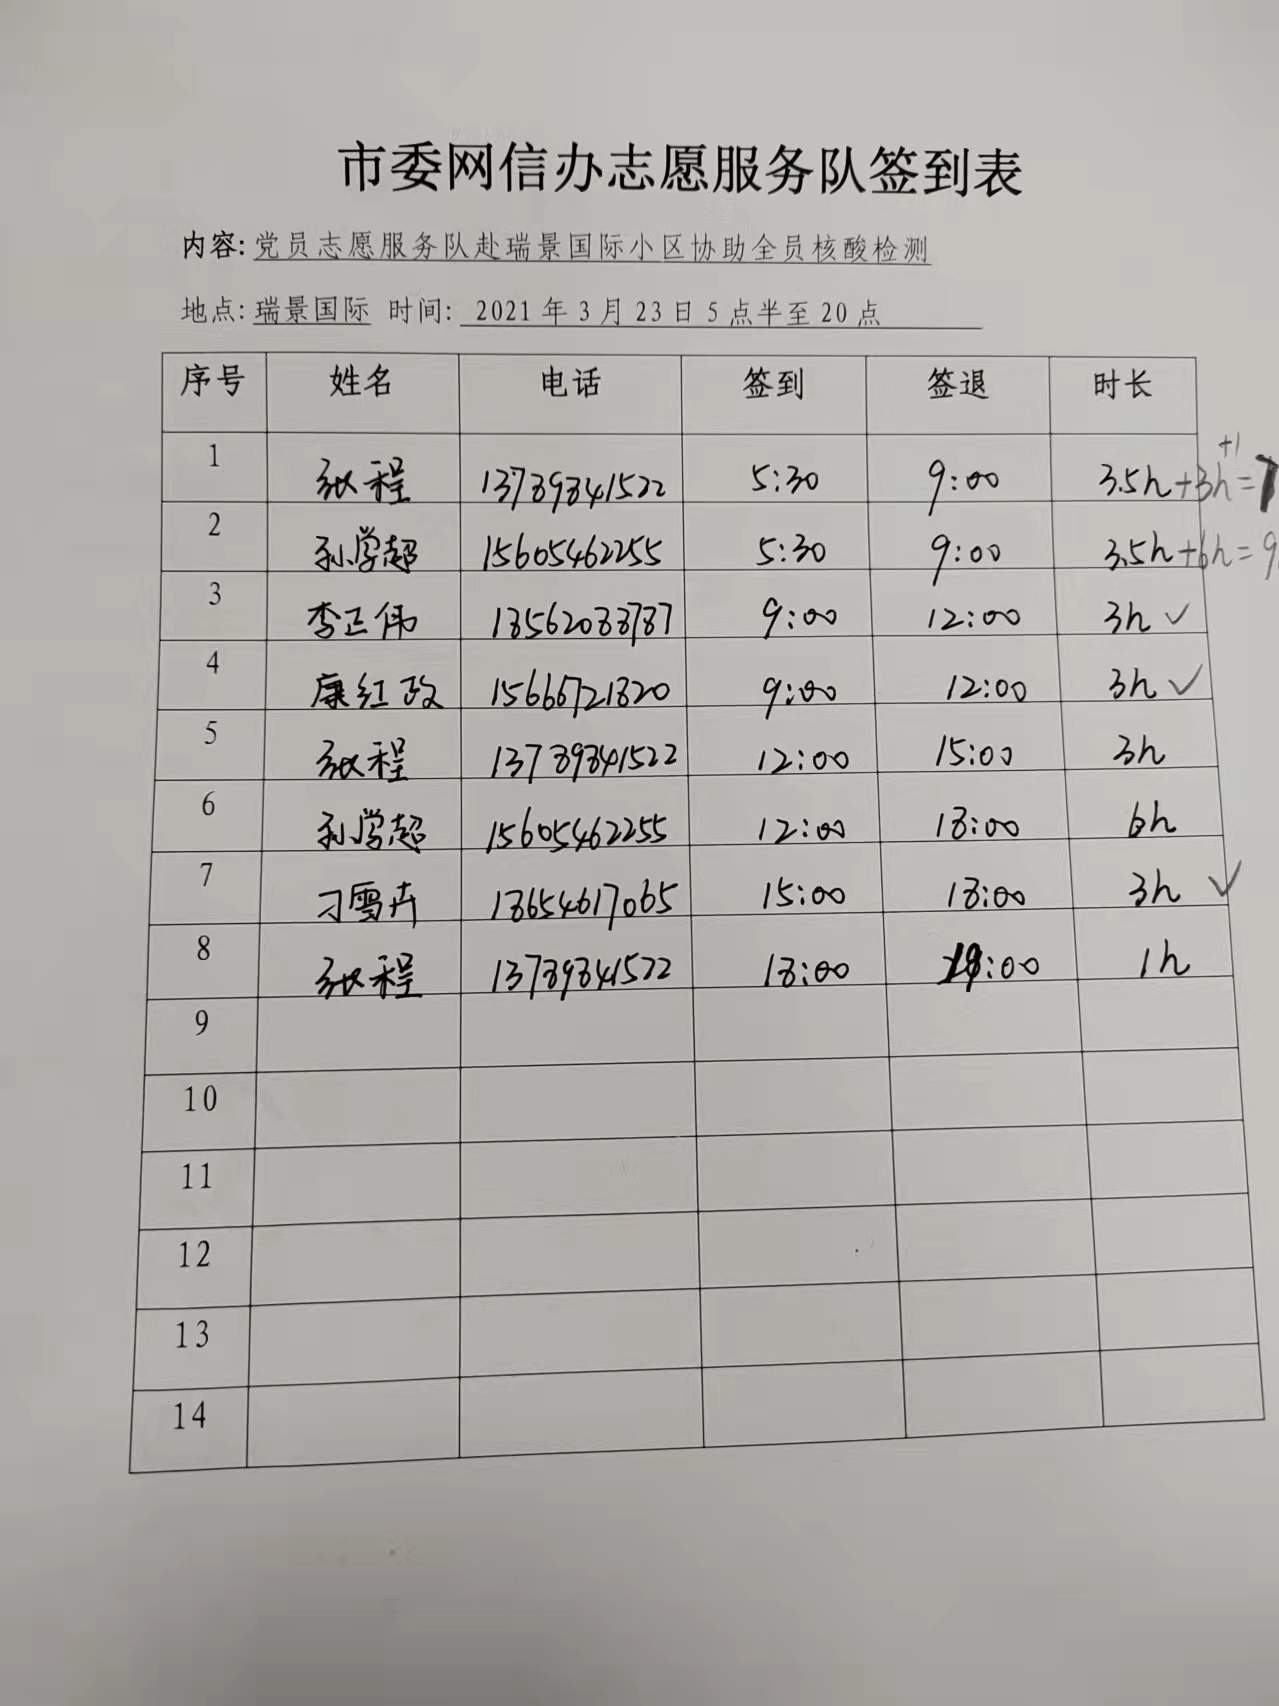 市委网信办志愿服务队签到表
内容: 党员志愿服务队赴瑞景国际小区协助全员核酸检测
地点: 瑞景国际 时间: 2021年3月23日5点半至20点
序号 姓名 电话 签到 签退 时长
+1
1 张程 13789841522 5:30 9:00 3.5h+3h=7
2 孙学超 15605462255 5:30 9:00 3.5h+6h=9
3 李正伟 18562088787 9:00 12:00 3h ✓
4 康红政 15666721820 9:00 12:00 3h ✓
5 张程 13789841522 12:00 15:00 3h
6 孙学超 15605462255 12:00 18:00 6h
7 刁雪卉 18654617065 15:00 18:00 3h ✓
8 张程 13789841522 18:00 19:00 1h
9
10
11
12
13
14